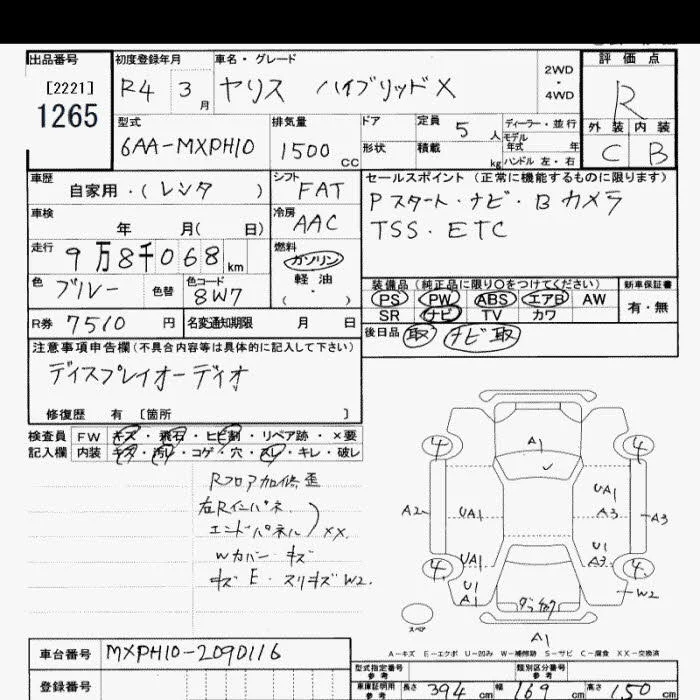 出品番号
[2221]
1265
初度登録年月
R4 3月
車名・グレード
ヤリス ハイブリッドX
2WD
・
4WD
評価点
R
外装 内装
C B
型式
6AA-MXPH10
排気量
1500 cc
ドア
形状
定員 5 人
積載 kg
ディーラー・並行
モデル
年式 年
ハンドル 左・右
車歴
自家用・(レンタ)
シフト
FAT
セールスポイント (正常に機能するものに限ります)
Pスタート・ナビ・Bカメラ
TSS・ETC
車検
年 月( 日)
冷房
AAC
走行
9万8千068km
燃料
ガソリン
軽油
(・)
色
ブルー
色替
色コード
8W7
装備品 (純正品に限り○をつけてください)
新車保証書
PS PW ABS エアB AW
SR ナビ TV カワ
有・無
R券 7510 円
名変通知期限 月 日
後日品 取 ナビ取
注意事項申告欄(不具合内容等は具体的に記入して下さい)
ディスプレイオーディオ
修復歴 有 〔箇所 〕
検査員 FW キズ・飛石・ヒビ割・リペア跡・×要
記入欄 内装 キズ・汚レ・コゲ・穴・スレ・キレ・破レ
Rフロア加修歪
右Rインパネ
エンドパネル XX.
Wカバーキズ
キズE・スリキズW2.
4 4
A1
UA1
A2 UA1 A3 A3
UA1 U1
A3
4 4
U1
A1
W2
スペア
A1
A-キズ E-エクボ U-凹み W-補修跡 S-サビ C-腐食 XX-交換済
車台番号 MXPH10-2090116
登録番号
型式指定番号
参考
類別区分番号
参考
車庫証明用
参考
長さ 394 cm 幅 169 cm 高さ 150 cm